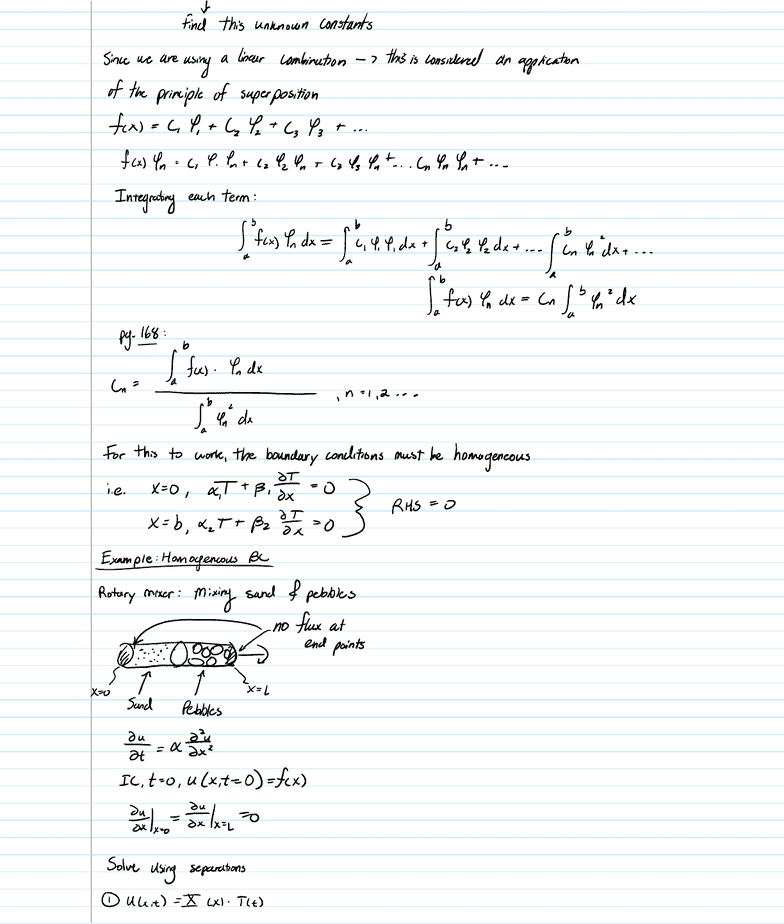 ↓
Find this unknown constants
Since we are using a linear combination -> this is considered an application
of the principle of superposition
f(x) = C₁ φ₁ + C₂ φ₂ + C₃ φ₃ + ...
f(x) φₙ = C₁ φ₁ φₙ + C₂ φ₂ φₙ + C₃ φ₃ φₙ + ... Cₙ φₙ φₙ + ...
Integrating each term:
∫ₐᵇ f(x) φₙ dx = ∫ₐᵇ C₁ φ₁ φ₁ dx + ∫ₐᵇ C₂ φ₂ φ₂ dx + ... ∫ₐᵇ Cₙ φₙ² dx + ...
∫ₐᵇ f(x) φₙ dx = Cₙ ∫ₐᵇ φₙ² dx
pg. 168:
Cₙ = ∫ₐᵇ f(x) · φₙ dx / ∫ₐᵇ φₙ² dx , n = 1, 2 ...
For this to work, the boundary conditions must be homogeneous
i.e. x=0, α₁T + β₁ ∂T/∂x = 0
x=b, α₂T + β₂ ∂T/∂x = 0
RHS = 0
Example: Homogeneous BC
Rotary mixer: Mixing sand & pebbles
no flux at
end points
x=0
x=L
Sand Pebbles
∂u/∂t = α ∂²u/∂x²
IC, t=0, u(x,t=0)=f(x)
∂u/∂x|x=0 = ∂u/∂x|x=L = 0
Solve using separations
① u(x,t) = X(x) · T(t)